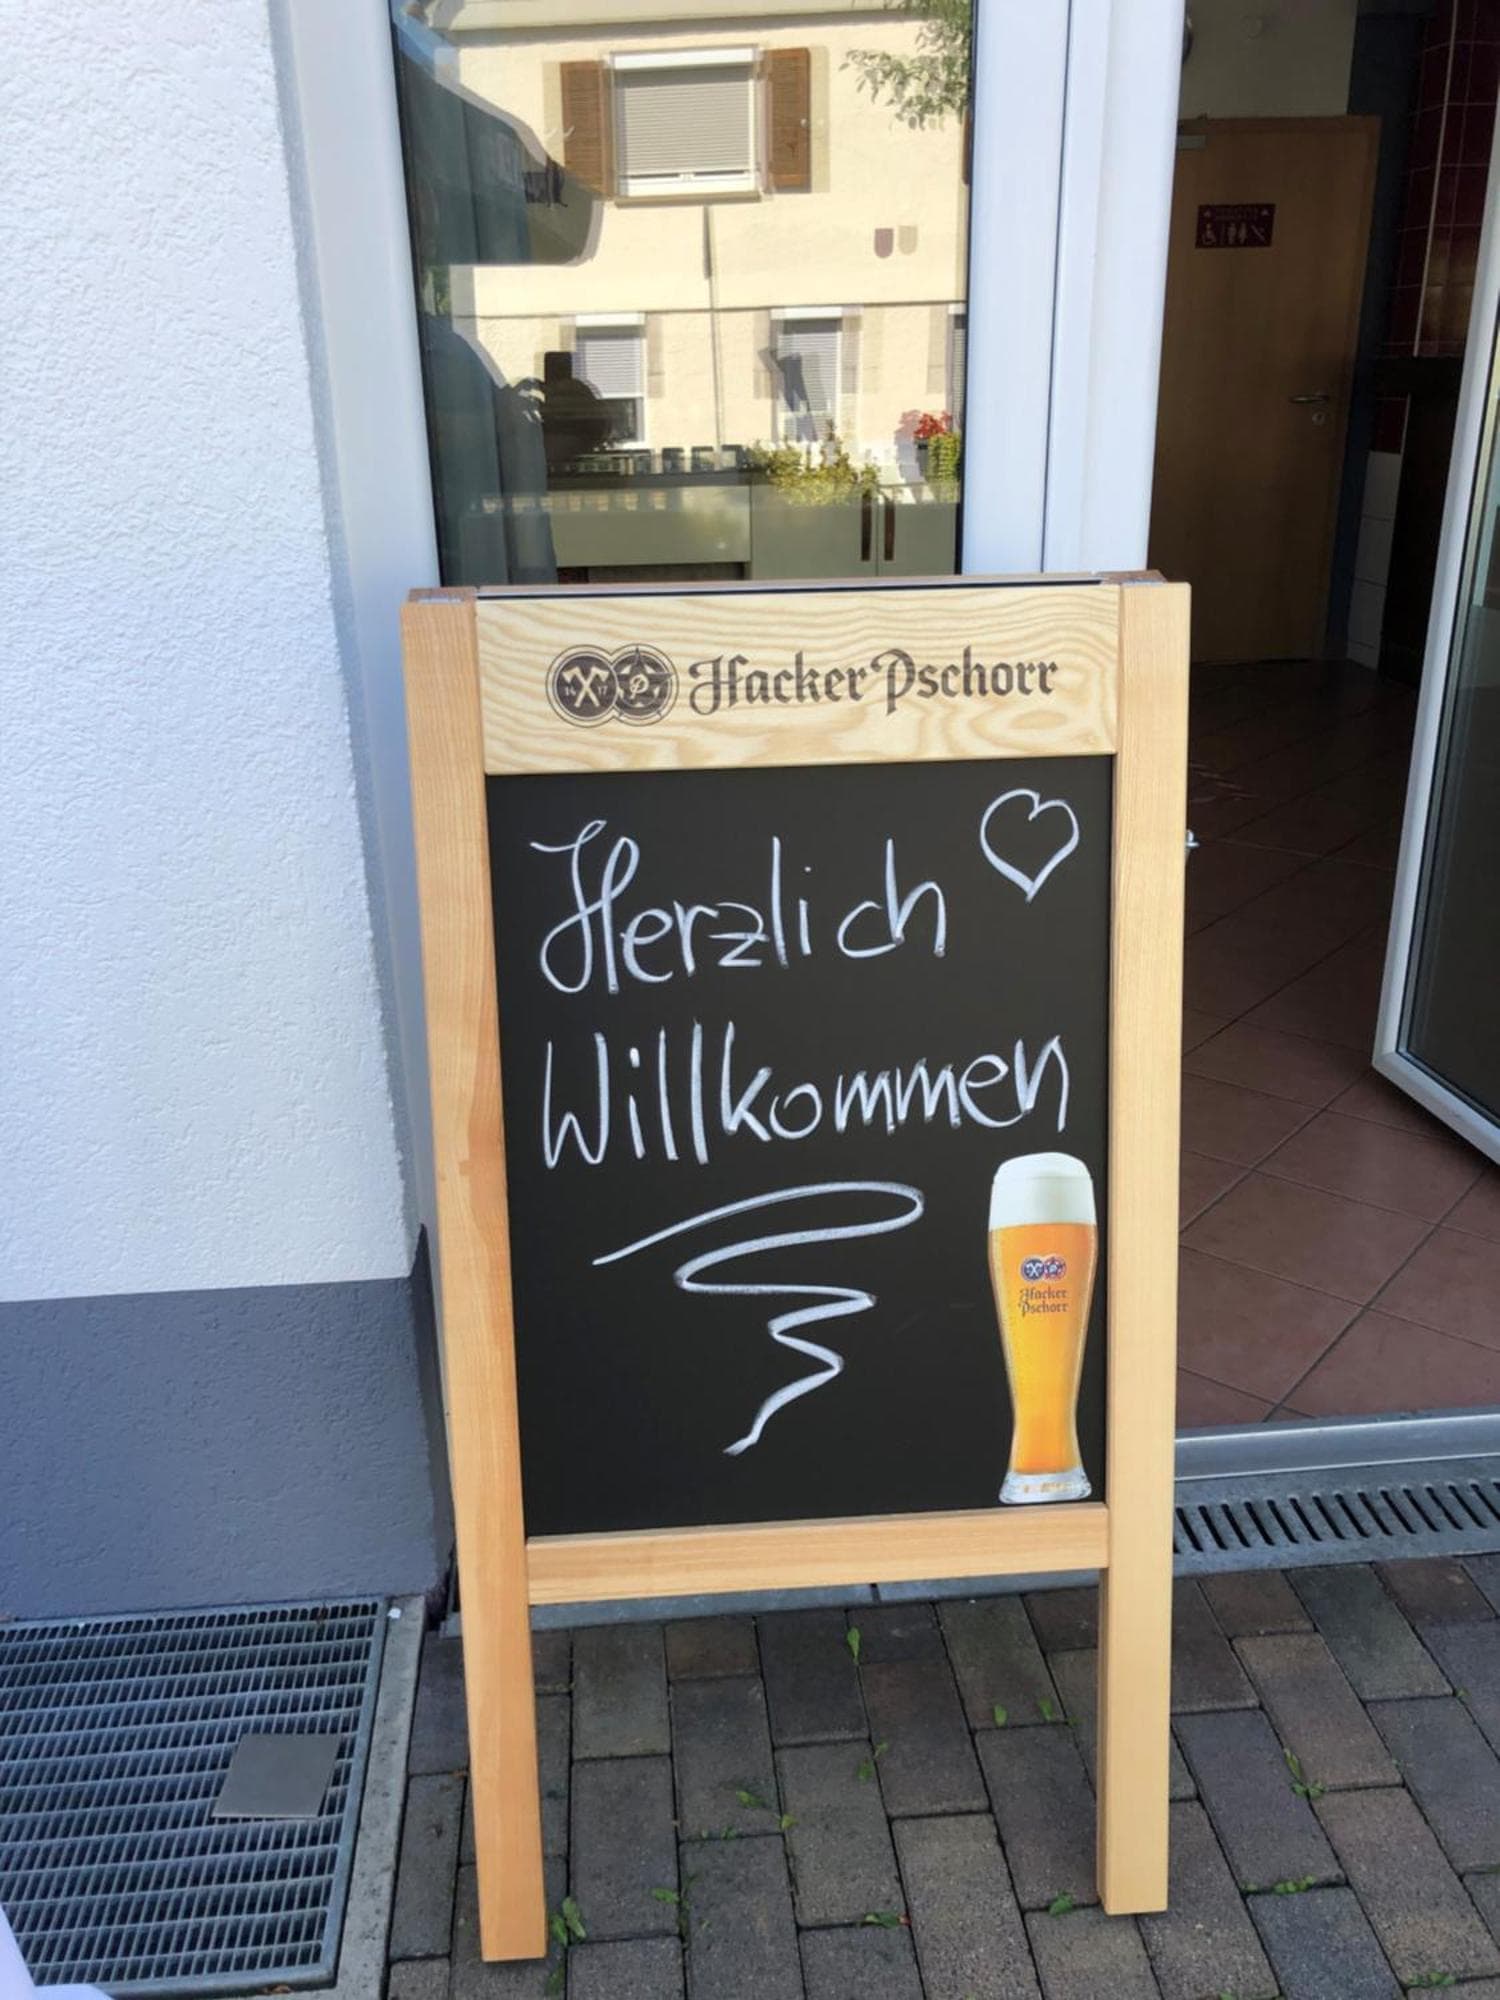 16 17 P
Hacker Pschorr
Herzlich
Willkommen
Hacker
Pschorr